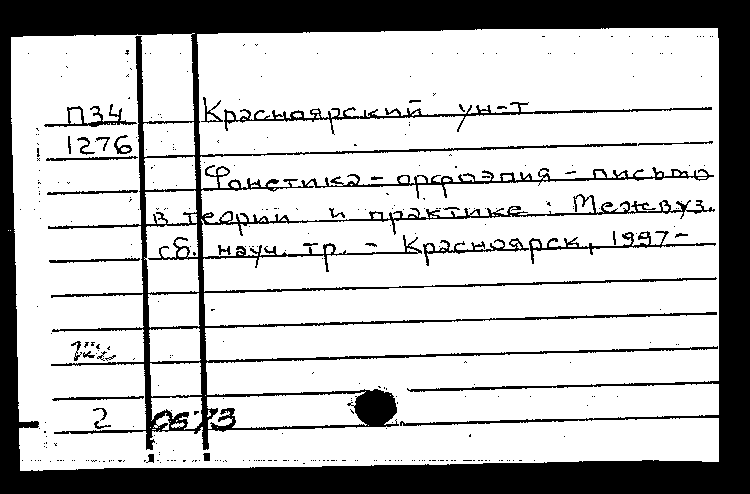 П34 Красноярский ун-т
1276
Фонетика - орфоэпия - письмо
в теории и практике : Межвуз.
сб. науч. тр. - Красноярск, 1997-
2 0673